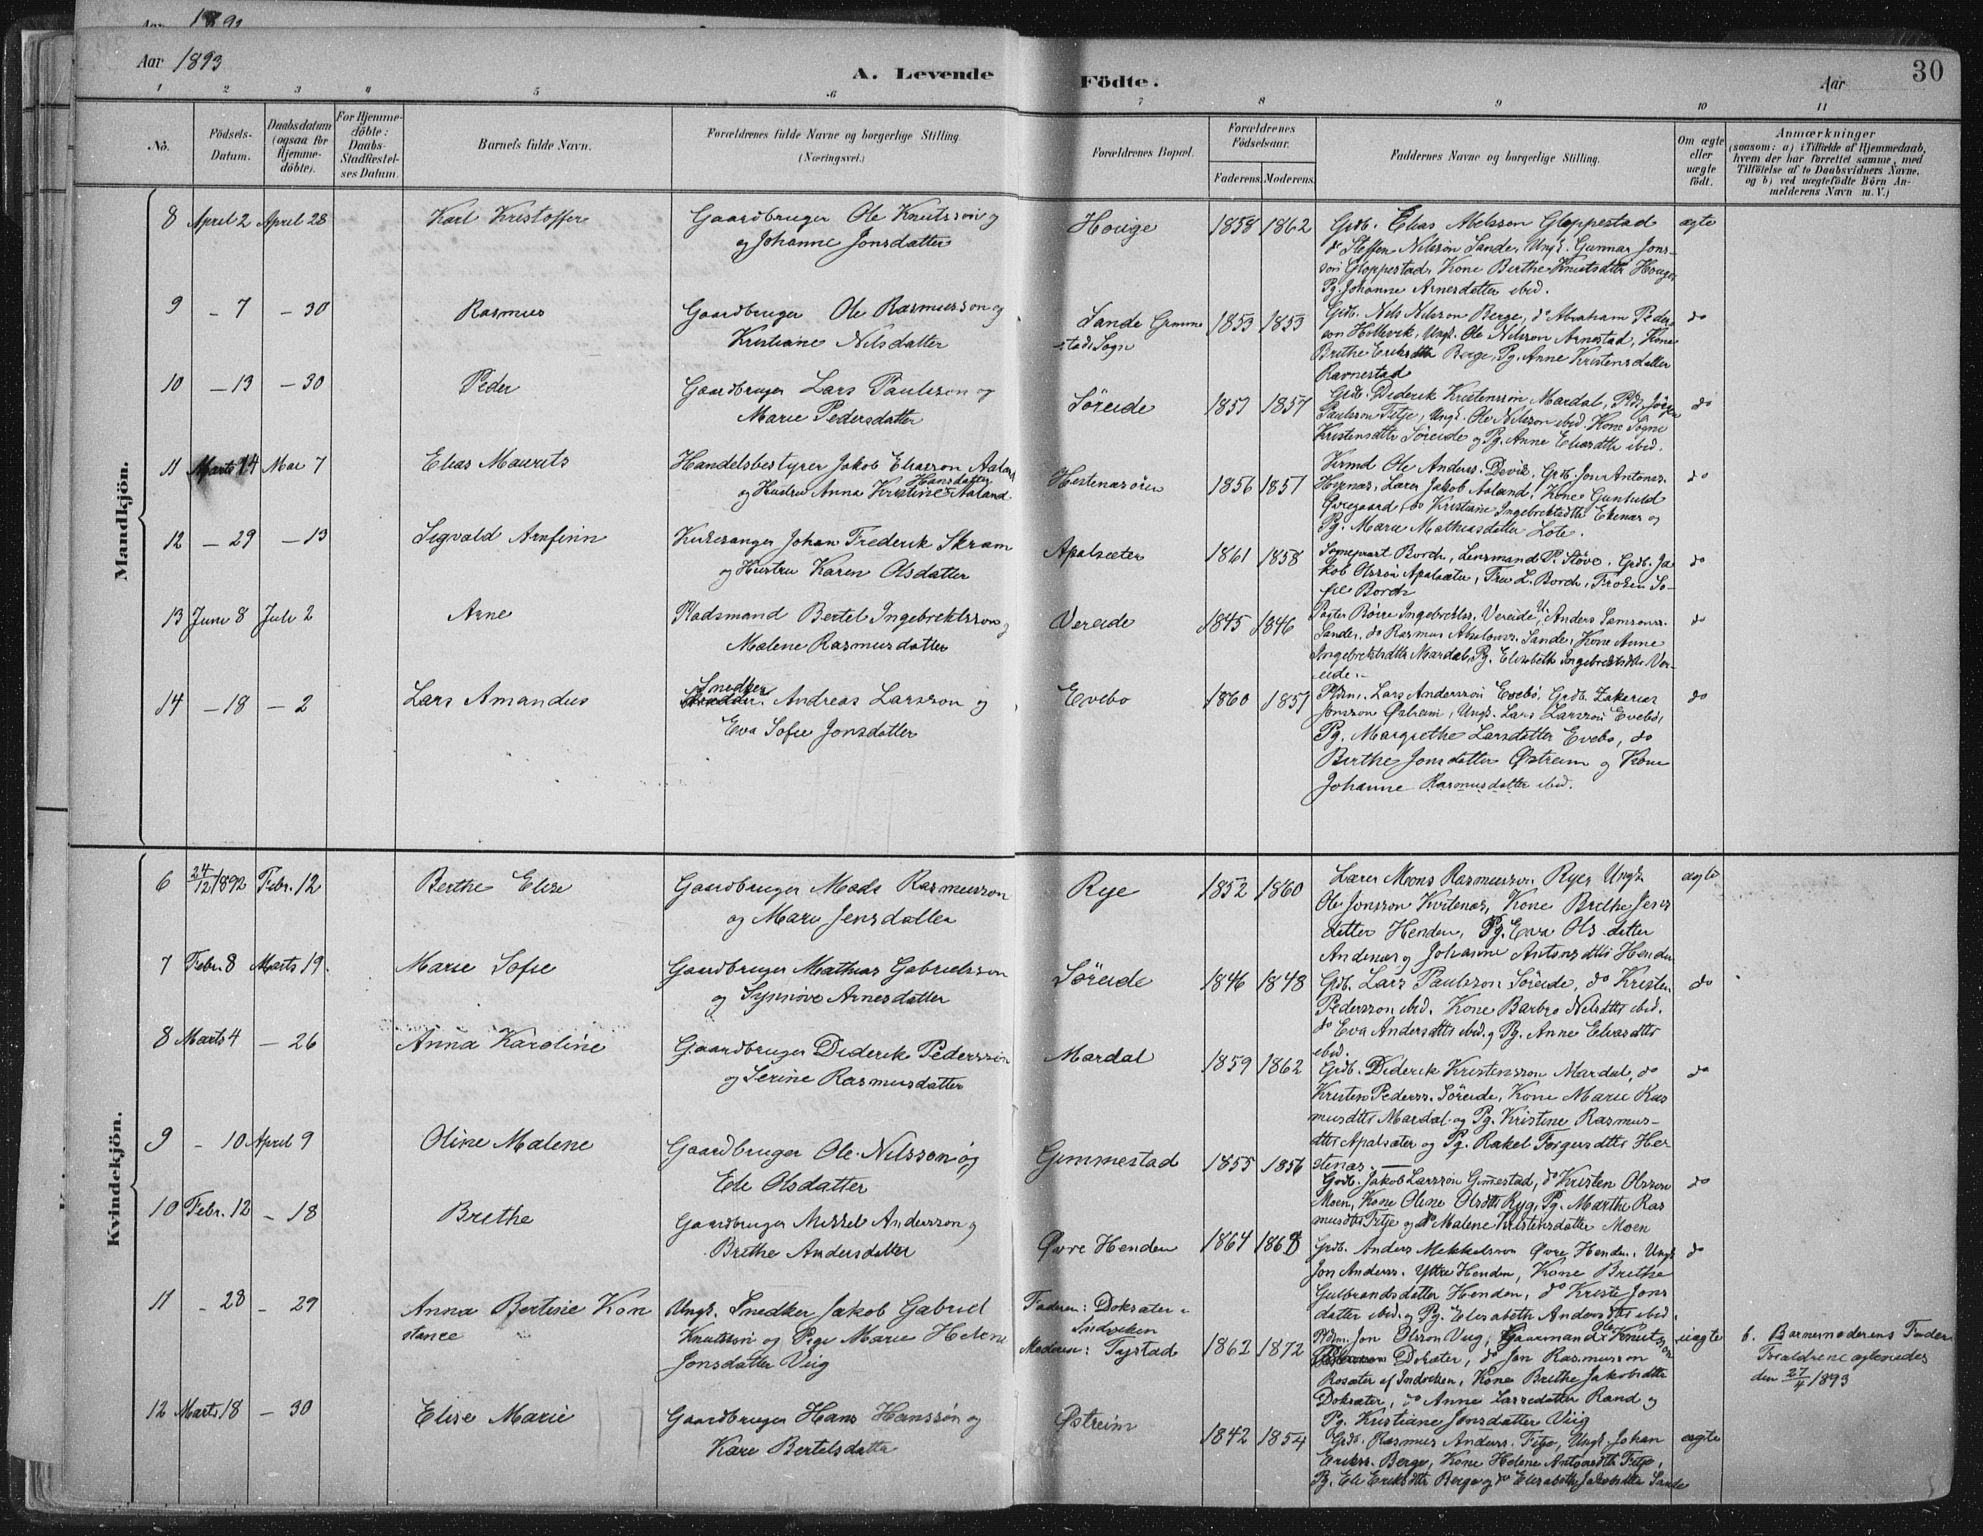 Aar 1893
A. Levende Födte.
Aar
30
1 2 3 4 5 6 7 8 9 10 11
No.
Födsels-Datum.
Daabsdatum (ogsaa for Hjemme-döbte).
For Hjemme-döbte: Daabs-Stadfæstel-ses Datum.
Barnets fulde Navn.
Forældrenes fulde Navne og borgerlige Stilling. (Næringsvei.)
Forældrenes Bopæl.
Forældrenes Födselsaar.
Faderens. Moderens.
Faddernes Navne og borgerlige Stilling.
Om ægte eller uægte födt.
Anmærkninger
(saasom: a) i Tilfælde af Hjemmedaab, hvem der har forrettet samme, med Tilföielse af to Daabsvidners Navne, og b) ved uægtefödte Börn Anmelderens Navn m. V.)
Mandkjön.
8 April 2 April 28 Karl Kristoffer Gaardbruger Ole Knutsson og
og Johanne Jonsdatter
Houge 1858 1862
Grdb. Elias Abelsson Gloppestad
do Steffen Nilsson Sande, Ungk. Gunnar Jons-
son Gloppestad, Kone Berthe Knutsdtr Houge,
Pg. Johanne Arnesdatter ibid.
ægte
9 - 7 - 30 Rasmus Gaardbruger Ole Rasmusson og
Kristiane Nilsdatter
Sande Gimme
stad Sogn
1859 1859
Grdb. Nils Nilsson Berge, do Abraham Peders
son Holtevik, Ungk. Ole Nilsson Arnestad, Kone
Brithe Eriksdtr Berge, Pg. Anne Kristensdatter
Ravnestad
do
10 - 13 - 30 Peder Gaardbruger Lars Paulsson og
Marie Pedersdatter
Söreide 1857 1857
Grdb. Diderik Kristensson Mardal, Pdr. Jörgen
Paulsson Fitje, Ungk. Ole Nilsson ibid. Kone Sogne
Kristensdtr Söreide og Pg. Anne Eliasdtr ibid.
do
11 Marts 14 Mai 7 Elias Maurits Handelsbestyrer Jakob Eliasson Aaland
og Hustru Anna Kristine Hansdatter Aaland
Hestenesören 1856 1857
Kirmd Ole Anders. Devik, Grdb. Jon Antons.
Hopnæs, Lærer Jakob Aaland, Kone Gunhild
Øvregaard, do Kristiane Ingebrektsdtr Ekenæs og
Pg. Marie Mathiasdatter Lote.
do
12 - 29 - 13 Sigvald Arnfinn Kirkesanger Johan Frederik Skram
og Hustru Karen Olsdatter
Apalsæter 1861 1858
Sogneprest Borch, Lensmand P. Stöve, Grdb. Ja
kob Olsson Apalsæter, Fru L. Borch, Fröken So-
fie Borch
do
13 Juni 8 Juli 2 Arne Pladsmand Bertel Ingebrektsson og
Malene Rasmusdatter
Vereide 1845 1846
Pastor Börre Ingebrektss. Vereide, U. Anders Samsons.
Sande, do Rasmus Absalons. Sande, Kone Anne
Ingebrektsdtr Mardal, Pg. Elisabeth Ingebrektsdtr Ver-
eide.
do
14 - 18 - 2 Lars Amandus Snedker Andreas Larsson og
Eva Sofie Jonsdatter
Evebö 1860 1857
Pldm. Lars Andersson Evebö, Grdb. Zakarias
Jonsson Østreim, Ungk. Lars Larsson Evebö,
Pg. Margrethe Larsdatter Evebö, do
Berthe Jonsdatter Østreim og Kone
Johanne Rasmusdatter ibid.
do
Kvindekjön.
6 24/12 1892 Febr. 12 Berthe Elise Gaardbruger Mads Rasmusson
og Marie Jensdatter
Rye 1852 1860
Lærer Mons Rasmusson Rye, Ungk.
Ole Jonsson Kvitenæs, Kone Brithe Jens
datter Henden, Pg. Eva Olsdatter
Andenæs og Johanne Antonsdtr Henden
ægte
7 Febr. 8 Marts 19. Marie Sofie Gaardbruger Mathias Gabrielsson
og Synnöve Arnesdatter
Söreide 1846 1848
Grdb. Lars Paulsson Söreide, do Kristen
Pedersson ibid. Kone Barbro Nilsdtr ibid.
do Eva Andersdtr ibid. og Pg. Anne Eliasdtr
ibid.
do
8 Marts 4 - 26 Anna Karoline Gaardbruger Diderik Pedersson
og Serine Rasmusdatter
Mardal 1859 1862
Grdb. Diderik Kristensson Mardal, do
Kristen Peders. Söreide, Kone Marie Ras
musdtr Mardal og Pg. Kristine Rasmus-
dtr Apalsæter og Pg. Rakel Torgersdtr He-
stenæs.
do
9 - 10 April 9 Oline Malene Gaardbruger Ole Nilsson og
Ele Olsdatter
Gimmestad 1855 1856
Grdb. Jakob Larsson Gimmestad, do Kristen Olsson
Moen, Kone Oline Olsdtr Ryg, Pg. Marthe Ras
musdtr Fitje og do Malene Kristensdatter Moen
do
10 Febr. 12 - 18 Brithe Gaardbruger Mikkel Andersson og
Brithe Andersdatter
Øvre Henden 1864 1868
Grdb. Anders Mikkelsson Øvre Henden, Ungk
Jon Anderss. Yttre Henden, Kone Brithe
Gulbrandsdatter Henden, do Kristi Jons
datter ibid. og Pg. Elisabeth Andersdtr ibid.
do
11 - 28 - 29 Anna Bertine Kon
stance
Ungk. Snedker Jakob Gabriel
Knutsson og Pige Marie Helene
Jonsdatter Viig
Faderen: Doksæter i
Indviken
Moderen: Tystad
1862 1872
Pldm. Jon Olsson Viig, Gaarmand Ole Knutsson
Doksæter, do Jan Rasmusson
Rosæter af Indviken, Kone Brithe Jakobsdtr
Doksæter, do Anne Lassedatter Rand og
Pg. Kristiane Jonsdatter Viig
uægte
b. Barnemoderens Fader
Forældrene ægtevieedes
den 27/4 1893
12 Marts 18 - 30 Elise Marie Gaardbruger Hans Hansson og
Kari Bertelsdatter
Østreim 1842 1854
Grdb. Rasmus Anders. Fitje, Ungk. Johan
Erikss. Berge, Kone Helene Antonsdtr Fitje,
Pg. Eli Eriksdtr Berge og do Elisabeth Jakobsdtr Sande
ægte